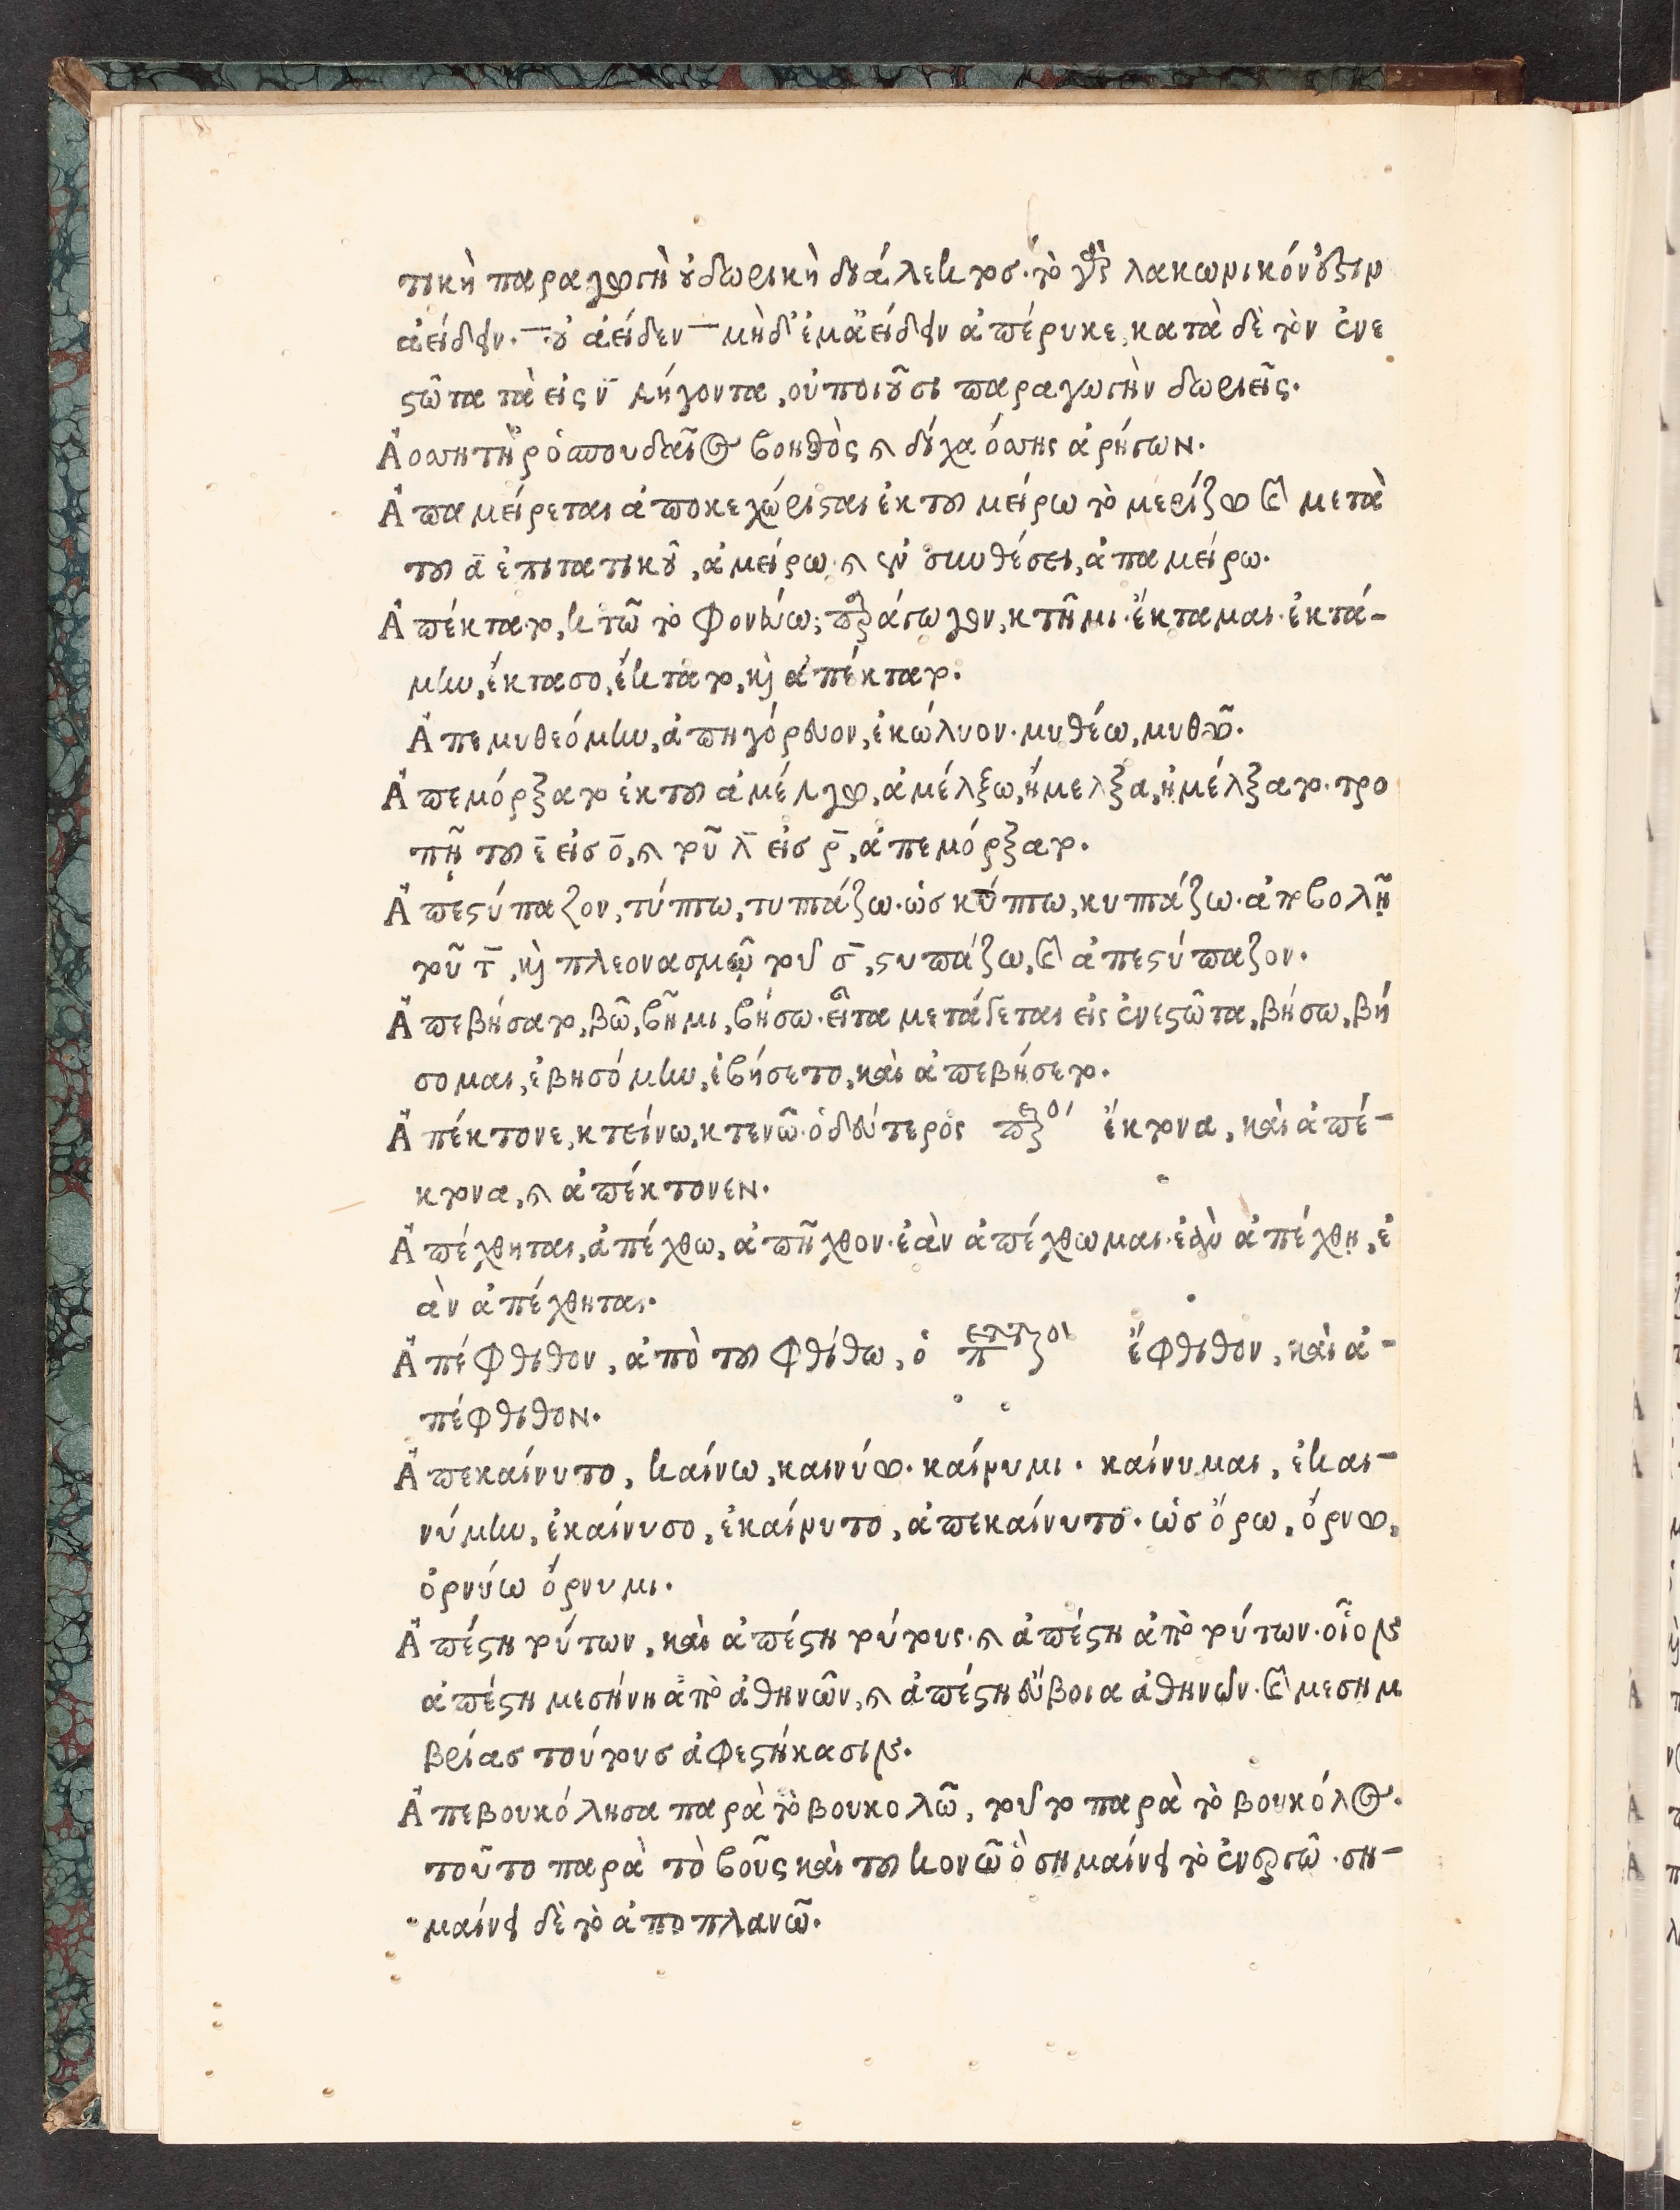 τικὴ παραγωγὴ οὐ δωρικὴ διάλεκτοσ. τὸ γὰρ λακωνικόν οὕτιν
ἀείδειν. οὐ ἀείδεν μὴ δ' ἐμ' ἀείδειν ἀπέρυκε, κατὰ δὲ τὸν ἐνε
ςῶτα τὰ εἰς ν̄ λήγοντα, οὐ ποιοῦσι παραγωγὴν δωριεῖς.
Ἀοσητὴρ ὁ σπουδαῖος βοηθὸς καὶ δίχα ὄσσης ἀρήγων.
Ἀπαμείρεται ἀποκεχώρισται ἐκ τοῦ μείρω τὸ μερίζω καὶ μετὰ
τοῦ ᾱ ἐπιτατικοῦ, ἀμείρω. καὶ ἐν συνθέσει, ἀπαμείρω.
Ἀπέκτατο, κτῶ τὸ φονεύω; κτῆμι. ἔκταμαι. ἐκτά-
μην, ἔκτασο, ἔκτατο, καὶ ἀπέκτατο.
Ἀπεμυθεόμην, ἀπηγόρευον, ἐκώλυον. μυθέω, μυθῶ.
Ἀπεμόρξατο ἐκ τοῦ ἀμέλγω, ἀμέλξω, ἤμελξα, ἠμέλξατο. τρο
πῇ τοῦ ε̄ εἰσ ο̄, καὶ τοῦ λ̄ εἰσ ρ̄, ἀπεμόρξατο.
Ἀπεςύπαζον, τύπτω, τυπτάζω. ὡσ κύπτω, κυπτάζω. ἀποβολῇ
τοῦ τ̄, καὶ πλεονασμῷ τοῦ σ̄, ςυπάζω, καὶ ἀπεςύπαζον.
Ἀπεβήσατο, βῶ, βῆμι, βήσω. εἶτα μετάγεται εἰς ἐνεςῶτα, βήσω, βή
σομαι, ἐβησόμην, ἐβήσετο, καὶ ἀπεβήσετο.
Ἀπέκτονε, κτείνω, κτενῶ. ὁ δεύτερος ἔκτονα, καὶ ἀπέ-
κτονα, καὶ ἀπέκτονεν.
Ἀπέχθηται, ἀπέχθω, ἀπῆχθον. ἐὰν ἀπέχθωμαι. ἐὰν ἀπέχθῃ, ἐ
ὰν ἀπέχθηται.
Ἀπέφθιθον, ἀπὸ τοῦ φθίθω, ὁ ἔφθιθον, καὶ ἀ-
πέφθιθον.
Ἀπεκαίνυτο, καίνω, καινύω. καίνυμι. καίνυμαι, ἐκαι-
νύμην, ἐκαίνυσο, ἐκαίνυτο, ἀπεκαίνυτο. ὡσ ὄρω, ὄρνω,
ὀρνύω ὄρνυμι.
Ἀπέςη τούτων, καὶ ἀπέςη τούτους. καὶ ἀπέςη ἀπὸ τούτων. οἷον
ἀπέςη μεσήνη ἀπὸ ἀθηνῶν, καὶ ἀπέςη εὔβοια ἀθηνῶν. καὶ μεσημ
βρίασ τούτουσ ἀφεςήκασιν.
Ἀπεβουκόλησα παρὰ τὸ βουκολῶ, τοῦτο παρὰ τὸ βουκόλος.
τοῦτο παρὰ τὸ βοῦς καὶ τοῦ κονῶ ὃ σημαίνει τὸ ἐνεργῶ. ση-
μαίνει δὲ τὸ ἀποπλανῶ.